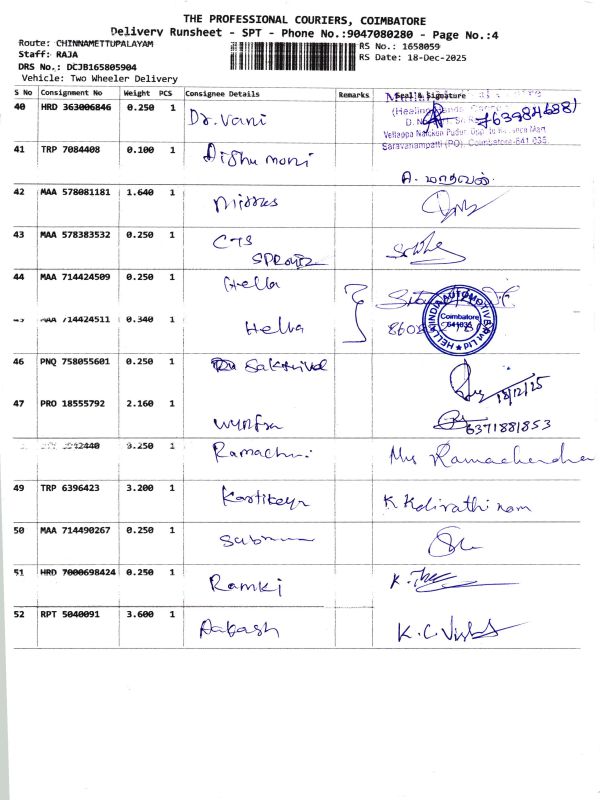 THE PROFESSIONAL COURIERS, COIMBATORE
Delivery Runsheet - SPT - Phone No.:9047080280 - Page No.:4
Route: CHINNAMETTUPALAYAM
Staff: RAJA
DRS No.: DCJB165805904
Vehicle: Two Wheeler Delivery
RS No.: 1658059
RS Date: 18-Dec-2025
S No Consignment No Weight PCS Consignee Details Remarks Seal & Signature
40 HRD 363006846 0.250 1 Dr. Vani
(Healing
Saravanampatti (PO), Coimbatore-641 035.
41 TRP 7084408 0.100 1 Dishu moni
A. மாதவன்
42 MAA 578081181 1.640 1
43 MAA 578383532 0.250 1 CTS
44 MAA 714424509 0.250 1 Hella
MAA 714424511 0.340 1 Hella
HELLA INDIA AUTOMOTIVE Pvt Ltd
Coimbatore
641035
46 PNQ 758055601 0.250 1 Sakthivel
18/12/25
47 PRO 18555792 2.160 1
6371881853
0.250 1 Ramachni Ramachendra
49 TRP 6396423 3.200 1 Kartikeyn K. Kdirathinam
50 MAA 714490267 0.250 1
51 HRD 7000698424 0.250 1 Ramki K.
52 RPT 5040091 3.600 1 Aakash K.C.